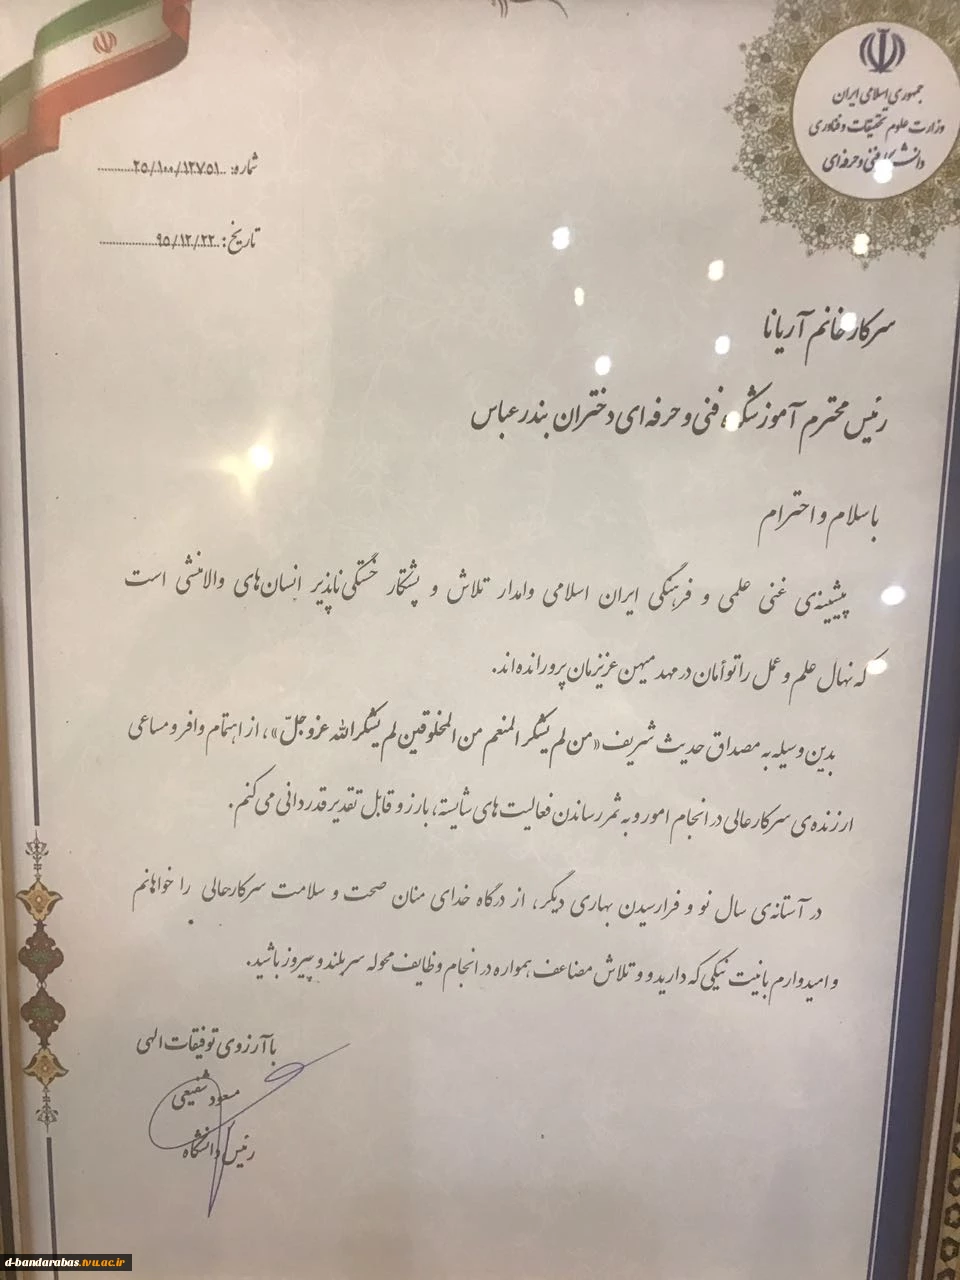 جمهوری اسلامی ایران
وزارت علوم تحقیقات و فناوری
دانشگاه فنی و حرفه‌ای
شماره: ۲۵/۱۰۰/۱۲۷۵۱
تاریخ: ۹۵/۱۲/۲۲
سرکار خانم آریانا
رئیس محترم آموزشکده فنی و حرفه ای دختران بندرعباس
با سلام و احترام
پیشینه‌ی غنی علمی و فرهنگی ایران اسلامی وامدار تلاش و پشتکار خستگی‌ناپذیر انسان‌های والامنشی است
که نهال علم و عمل را توأمان در مهد میهن عزیزمان پرورانده‌اند.
بدین وسیله به مصداق حدیث شریف «من لم یشکر المنعم من المخلوقین لم یشکر الله عزوجلّ»، از اهتمام وافر و مساعی
ارزنده‌ی سرکارعالی در انجام امور و به ثمر رساندن فعالیت‌های شایسته، بارز و قابل تقدیر قدردانی می‌کنم.
در آستانه‌ی سال نو و فرارسیدن بهاری دیگر، از درگاه خدای منان صحت و سلامت سرکارحالی را خواهانم
و امیدوارم با نیت نیکی که دارید و و تلاش مضاعف همواره در انجام وظایف محوله سربلند و پیروز باشید.
با آرزوی توفیقات الهی
مسعود شفیعی
رئیس دانشگاه
d-bandarabas.tvu.ac.ir